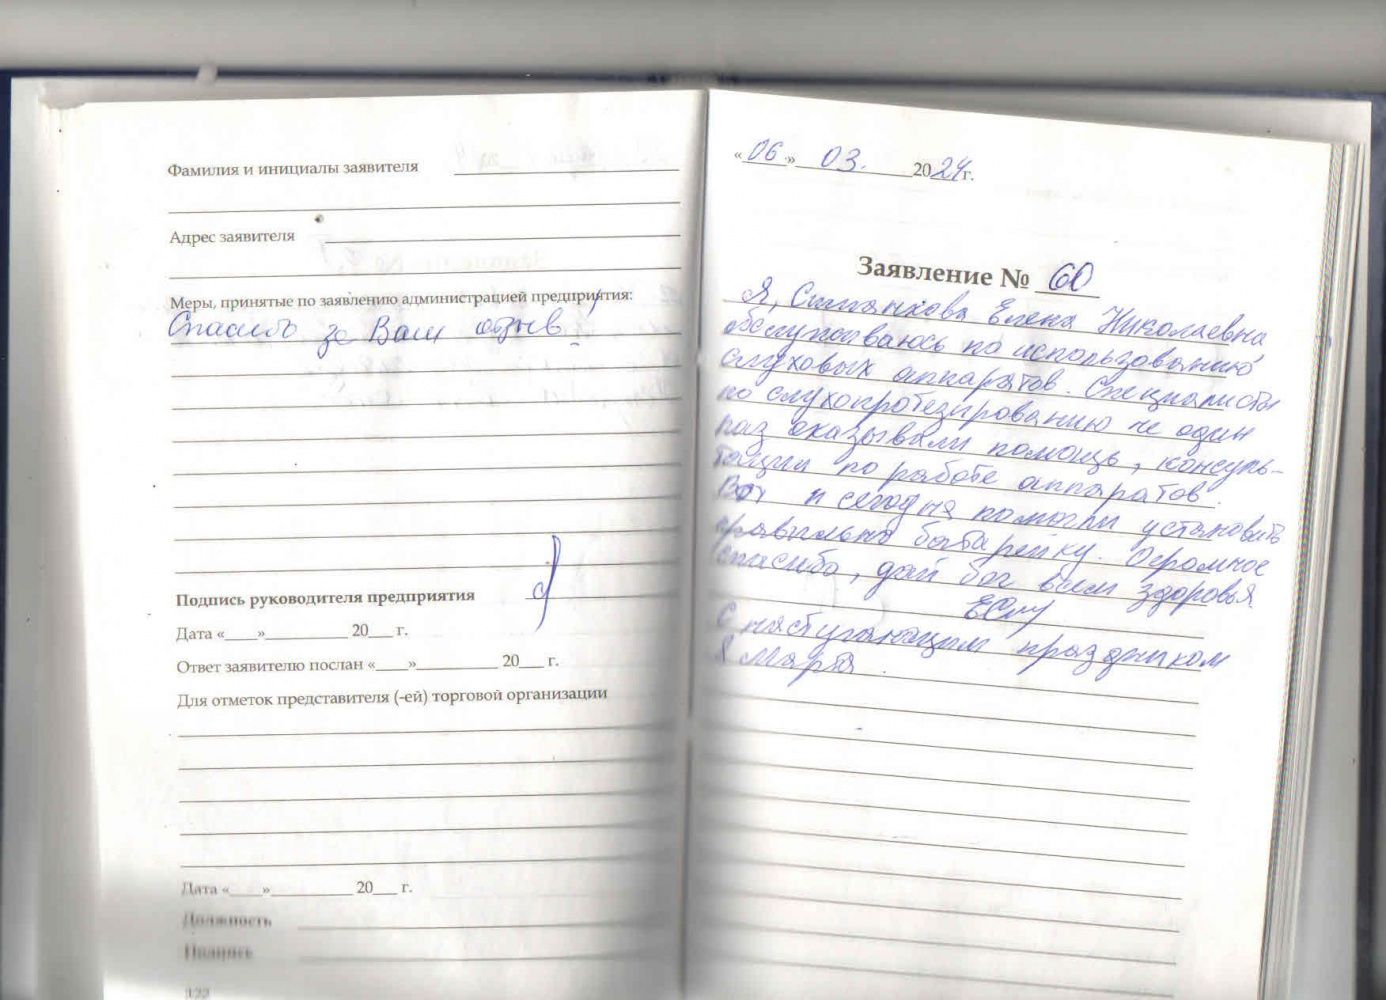 Фамилия и инициалы заявителя
Адрес заявителя
Меры, принятые по заявлению администрацией предприятия:
Спасибо за Ваш отзыв!
Подпись руководителя предприятия
Дата «____»__________ 20___ г.
Ответ заявителю послан «____»__________ 20___ г.
Для отметок представителя (-ей) торговой организации
Дата «____»__________ 20___ г.
Должность
Подпись
122
«06» 03. 2024 г.
Заявление № 60
Я, Елена Николаевна
обслуживаюсь по использованию
слуховых аппаратов. Специалисты
по слухопротезированию не один
раз оказывали помощь, консуль-
тации по работе аппаратов.
Вот и сегодня помогли установить
правильно батарейку. Огромное
спасибо, дай бог всем здоровья
С наступающим праздником
8 Марта.